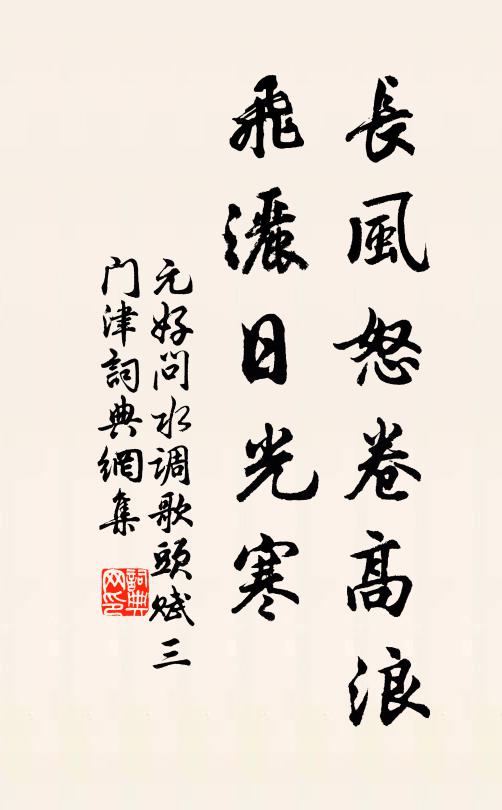 長風怒卷高浪
飛灑日光寒
元好问水调歌頭赋三
门津詞典網集
詞典
网印